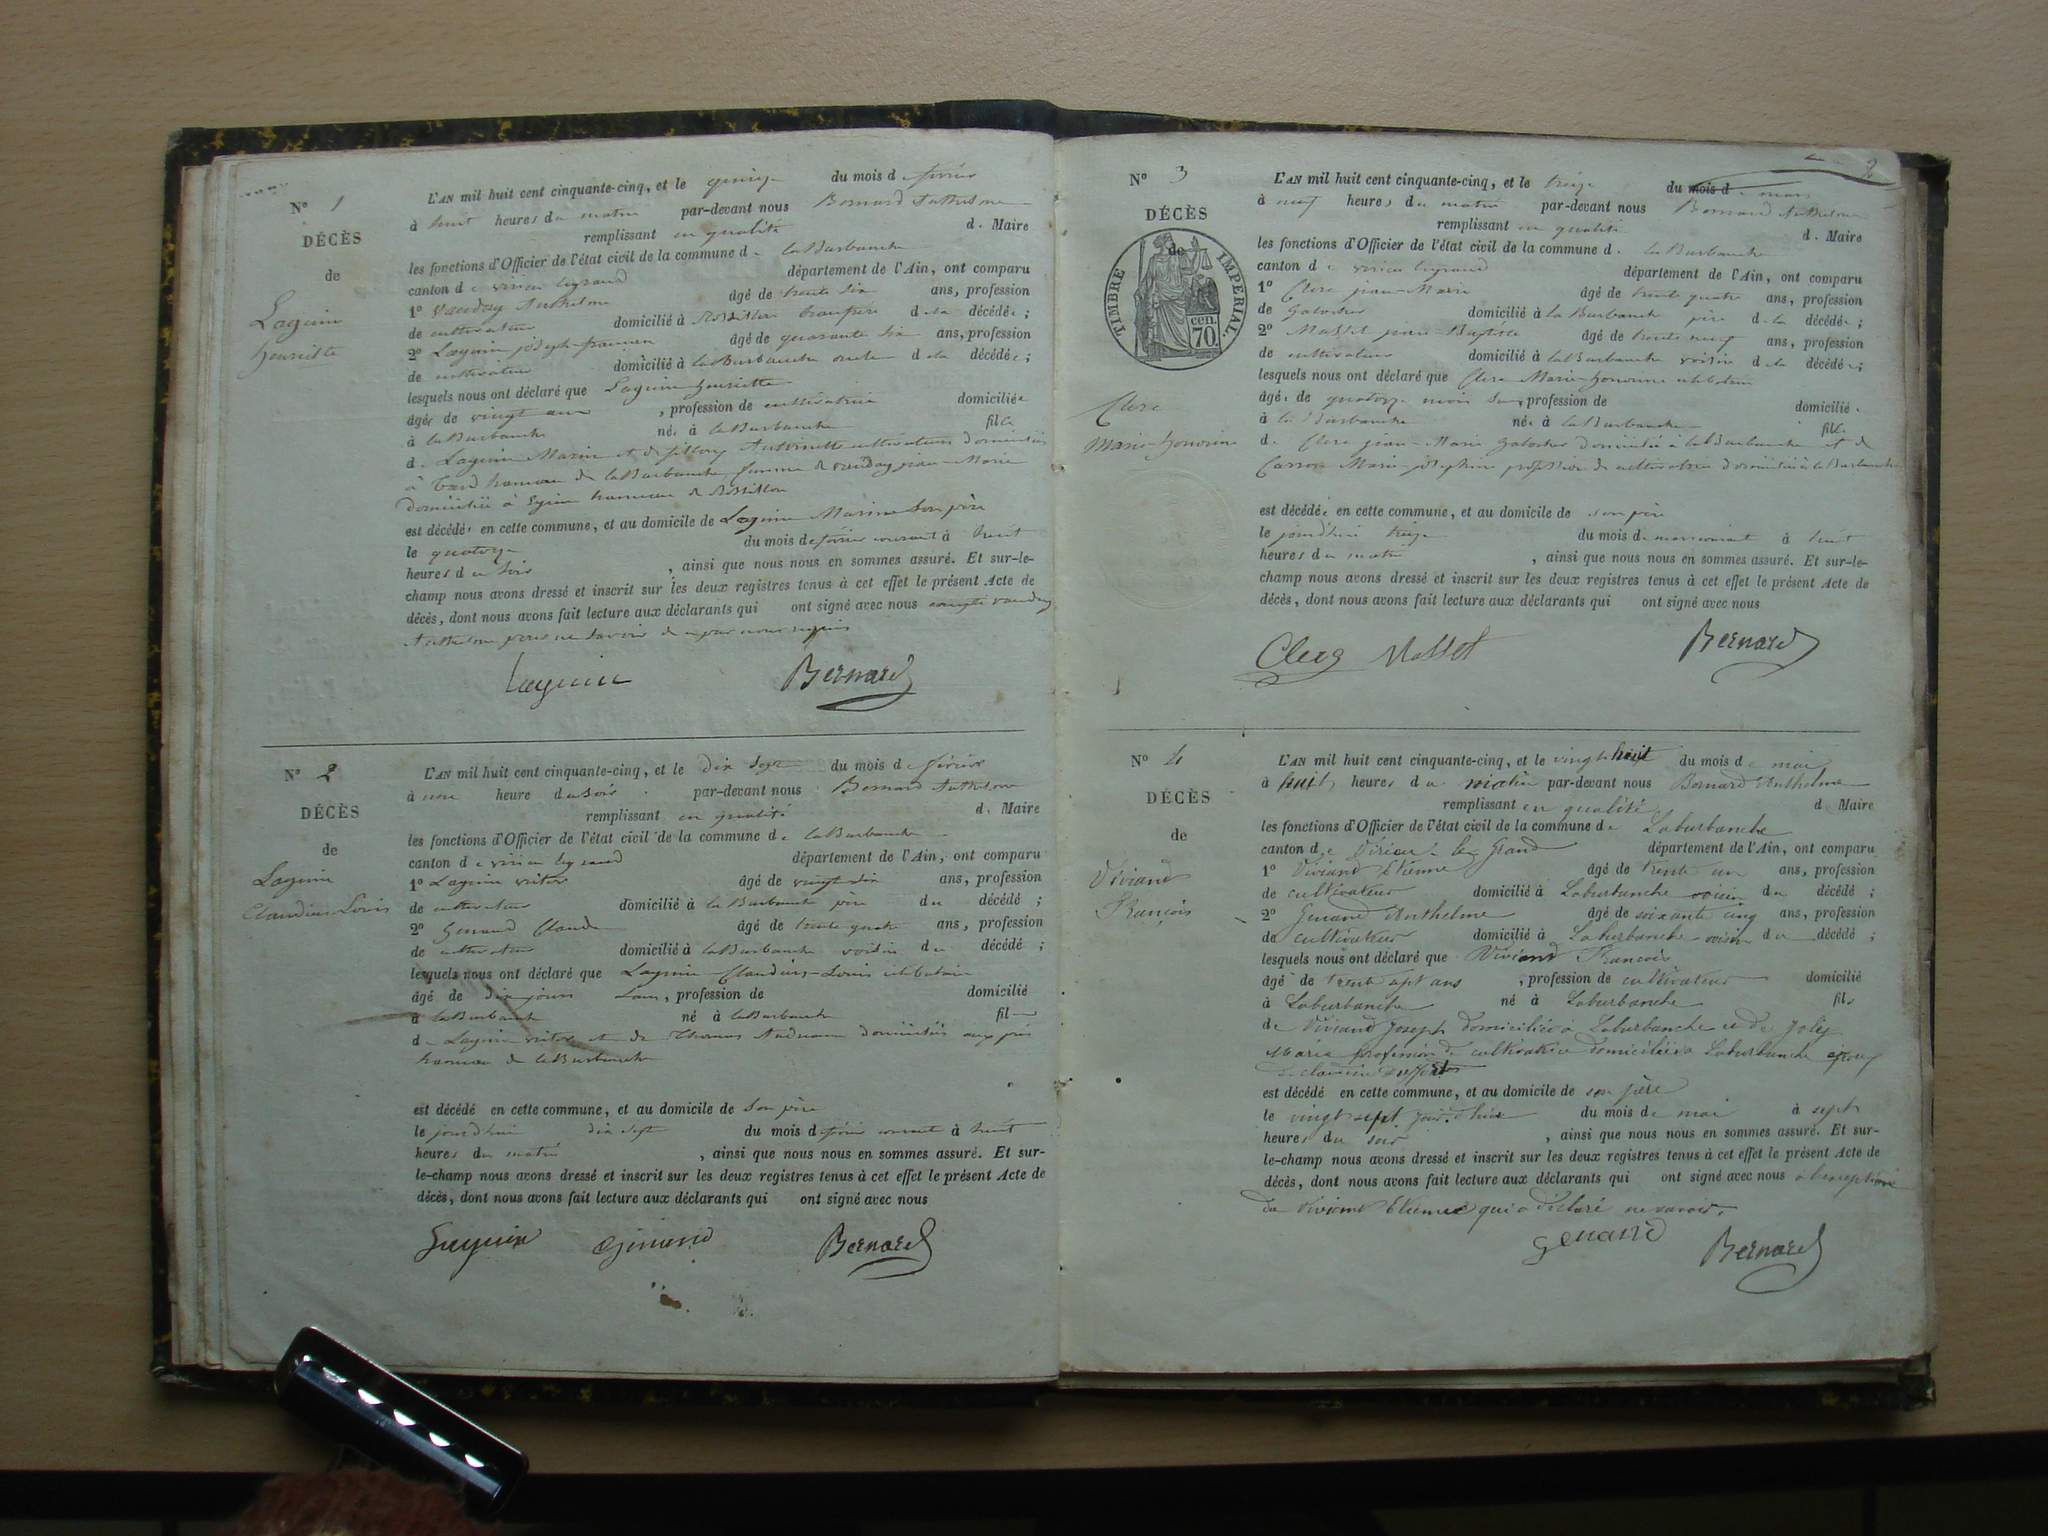 N° 1
DÉCÈS
de
Laguin
henriette
L'AN mil huit cent cinquante-cinq, et le quinze du mois de février
à huit heures du matin par-devant nous Bernard Anthelme
remplissant en qualité de Maire
les fonctions d'Officier de l'état civil de la commune de la Burbanche
canton de virieu legrand département de l'Ain, ont comparu
1° Vauday Anthelme âgé de trente six ans, profession
de cultivateur domicilié à Rossillon beaufrère de la décédée ;
2° Laguin joseph âgé de quarante six ans, profession
de cultivateur domicilié à la Burbanche oncle de la décédée ;
lesquels nous ont déclaré que Laguin henriette
âgée de vingt ans , profession de cultivatrice domiciliée
à la Burbanche née à la Burbanche fille
de Laguin Marin et de Antoinette cultivateurs domiciliés
à hameau de la Burbanche femme de vauday jean Marie
domiciliée à hameau de Rossillon
est décédée en cette commune, et au domicile de Laguin Marin son père
le quatorze du mois de février courant à huit
heures du soir , ainsi que nous nous en sommes assuré. Et sur-le-
champ nous avons dressé et inscrit sur les deux registres tenus à cet effet le présent Acte de
décès, dont nous avons fait lecture aux déclarants qui ont signé avec nous excepté vauday
Anthelme pour ne savoir de ce par nous requis
Laguin Bernard
N° 2
DÉCÈS
de
Laguin
Claudius Louis
L'AN mil huit cent cinquante-cinq, et le dix sept du mois de février
à une heure du soir par-devant nous Bernard Anthelme
remplissant en qualité de Maire
les fonctions d'Officier de l'état civil de la commune de la Burbanche
canton de virieu legrand département de l'Ain, ont comparu
1° Laguin victor âgé de vingt six ans, profession
de cultivateur domicilié à la Burbanche père du décédé ;
2° Genand Claude âgé de trente quatre ans, profession
de cultivateur domicilié à la Burbanche voisin du décédé ;
lesquels nous ont déclaré que Laguin Claudius Louis célibataire
âgé de dix jours sans, profession de domicilié
à la Burbanche né à la Burbanche fils
de Laguin victor et de Thomas domiciliés aux prés
hameau de la Burbanche
est décédé en cette commune, et au domicile de son père
le jourd'hui dix sept du mois de février courant à huit
heures du matin , ainsi que nous nous en sommes assuré. Et sur-
le-champ nous avons dressé et inscrit sur les deux registres tenus à cet effet le présent Acte de
décès, dont nous avons fait lecture aux déclarants qui ont signé avec nous
Laguin Genand Bernard
2
N° 3
DÉCÈS
de
TIMBRE IMPÉRIAL.
70 cen.
Clerc
Marie honorine
L'AN mil huit cent cinquante-cinq, et le treize du mois de mars
à neuf heures du matin par-devant nous Bernard Anthelme
remplissant en qualité de Maire
les fonctions d'Officier de l'état civil de la commune de la Burbanche
canton de virieu legrand département de l'Ain, ont comparu
1° Clerc jean-Marie âgé de trente quatre ans, profession
de galocher domicilié à la Burbanche père de la décédée ;
2° Masset pierre Baptiste âgé de trente neuf ans, profession
de cultivateur domicilié à la Burbanche voisin de la décédée ;
lesquels nous ont déclaré que Clerc Marie honorine célibataire
âgée de quatorze mois sans, profession de domiciliée
à la Burbanche née à la Burbanche fille
de Clerc jean-Marie galocher domicilié à la Burbanche et de
Carron Marie josephine profession de cultivatrice domiciliée à la Burbanche
est décédée en cette commune, et au domicile de son père
le jourd'hui treize du mois de mars courant à huit
heures du matin , ainsi que nous nous en sommes assuré. Et sur-le-
champ nous avons dressé et inscrit sur les deux registres tenus à cet effet le présent Acte de
décès, dont nous avons fait lecture aux déclarants qui ont signé avec nous
Clerg Masset Bernard
N° 4
DÉCÈS
de
Viviand
François
L'AN mil huit cent cinquante-cinq, et le vingt huit du mois de mai
à huit heures du matin par-devant nous Bernard Anthelme
remplissant en qualité de Maire
les fonctions d'Officier de l'état civil de la commune de Laburbanche
canton de Virieu-le-Grand département de l'Ain, ont comparu
1° Viviand Etienne âgé de trente un ans, profession
de cultivateur domicilié à Laburbanche voisin du décédé ;
2° Genand Anthelme âgé de soixante cinq ans, profession
de cultivateur domicilié à Laburbanche voisin du décédé ;
lesquels nous ont déclaré que Viviand François
âgé de trente sept ans , profession de cultivateur domicilié
à Laburbanche né à Laburbanche fils
de Viviand Joseph domicilié à Laburbanche et de Joly
Marie profession de cultivatrice domiciliée à Laburbanche époux
de claudine
est décédé en cette commune, et au domicile de son père
le vingt sept jour d'hier du mois de mai à sept
heures du soir , ainsi que nous nous en sommes assuré. Et sur-
le-champ nous avons dressé et inscrit sur les deux registres tenus à cet effet le présent Acte de
décès, dont nous avons fait lecture aux déclarants qui ont signé avec nous à l'exception
de Viviand Etienne qui a déclaré ne savoir.
Genand Bernard